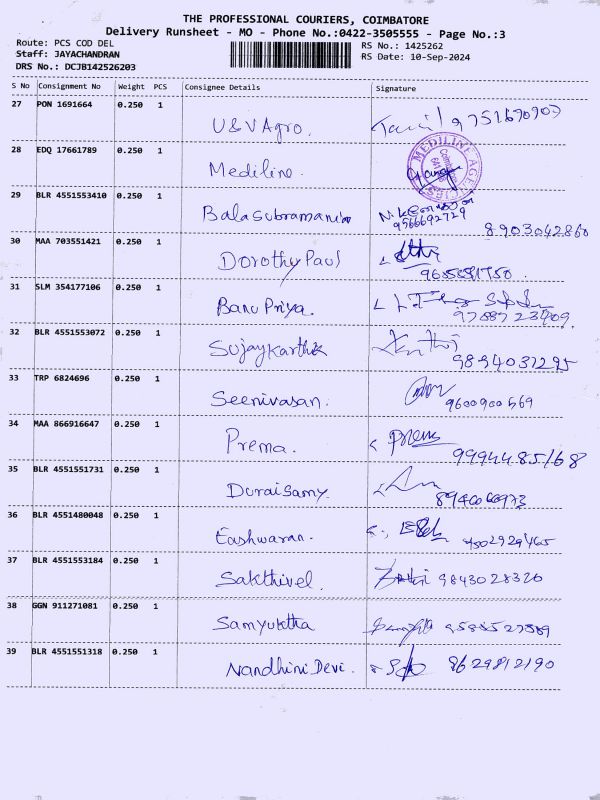 THE PROFESSIONAL COURIERS, COIMBATORE
Delivery Runsheet - MO - Phone No.:0422-3505555 - Page No.:3
Route: PCS COD DEL
RS No.: 1425262
Staff: JAYACHANDRAN
RS Date: 10-Sep-2024
DRS No.: DCJB142526203
S No Consignment No Weight PCS Consignee Details Signature
27 PON 1691664 0.250 1
U&V Agro.
28 EDQ 17661789 0.250 1
Mediline
MEDILINE AGENCIES
29 BLR 4551553410 0.250 1
Balasubramaniam
9566692729
8903042860
30 MAA 703551421 0.250 1
Dorothy Paul
31 SLM 354177106 0.250 1
Banu Priya.
32 BLR 4551553072 0.250 1
Sujaykarthik
9894031295
33 TRP 6824696 0.250 1
Seenivasan.
9600900569
34 MAA 866916647 0.250 1
Prema.
Prema
9994485168
35 BLR 4551551731 0.250 1
Duraisamy.
36 BLR 4551480048 0.250 1
Eashwaran.
37 BLR 4551553184 0.250 1
Sakthivel. 9843028320
38 GGN 911271081 0.250 1
Samyuktha
39 BLR 4551551318 0.250 1
Nandhini Devi. 8629812190